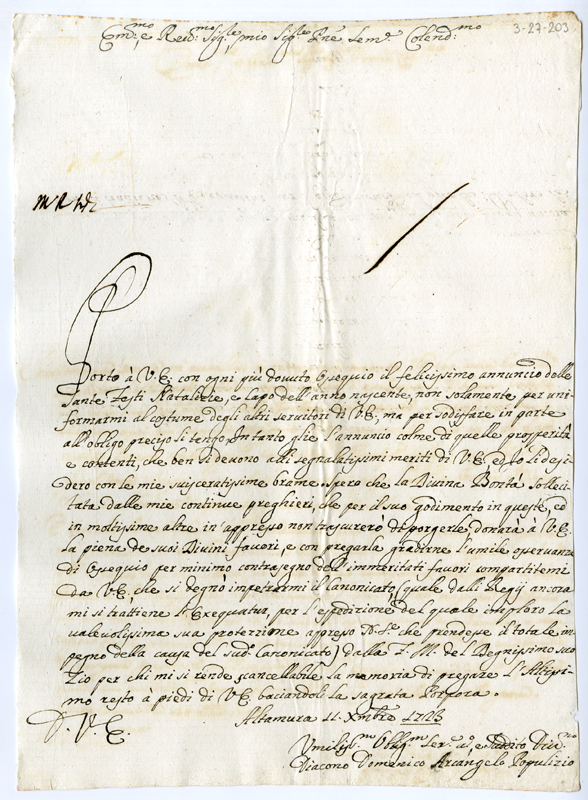 3-27-203
Em.mo e Rev.mo Sig.re mio Sig.re e Pne Sem.e Colend.mo
Porto à V.E. con ogni più dovuto ossequio il felicissimo annuncio delle
Sante Festi Natalizie, e Capo dell'anno nascente, non solamente per uni-
formarmi al costume degli altri servitori di V.E., mà per sodisfare in parte
all'obligo preciso li tengo. Intanto glie l'annuncio colme di quelle prosperità
e contenti, che ben si devono alli segnalatissimi meriti di V.E., ed Io li desi-
dero con le mie suisceratissime brame. Spero che la Divina Bontà solleci-
tata dalle mie continue preghieri, che per il suo godimento in queste, ed
in moltissime altre in'appresso non trascurerò di porgerle donarà à V.E.
la piena de suoi Divini favori, e con pregarla gradirne l'umile osservanza
di ossequio per minimo contrasegno dell'immeritati favori compartitemi
da V.E. che si degnò impetrarmi il Canonicato, (quale dalli Regij ancora
mi si trattiene l'Exequatur, per l'espedizione del quale imploro la
valevolissima sua protezzione appresso N. S.re che prendesse il totale im-
pegno della causa del sud.o Canonicato) dalla F. M. del Begnissimo suo
Zio per chi mi si rende scancellabile la memoria di pregare l'Altissi-
mo resto à piedi di V.E. baciandoli la sagrata Porpora.
Altamura 11. Xmbre 1723
D. V. E.
Umiliss.mo Oblig.mo Ser.e ed e sudito Div.mo
Diacono Domenico Arcangelo Popolizio